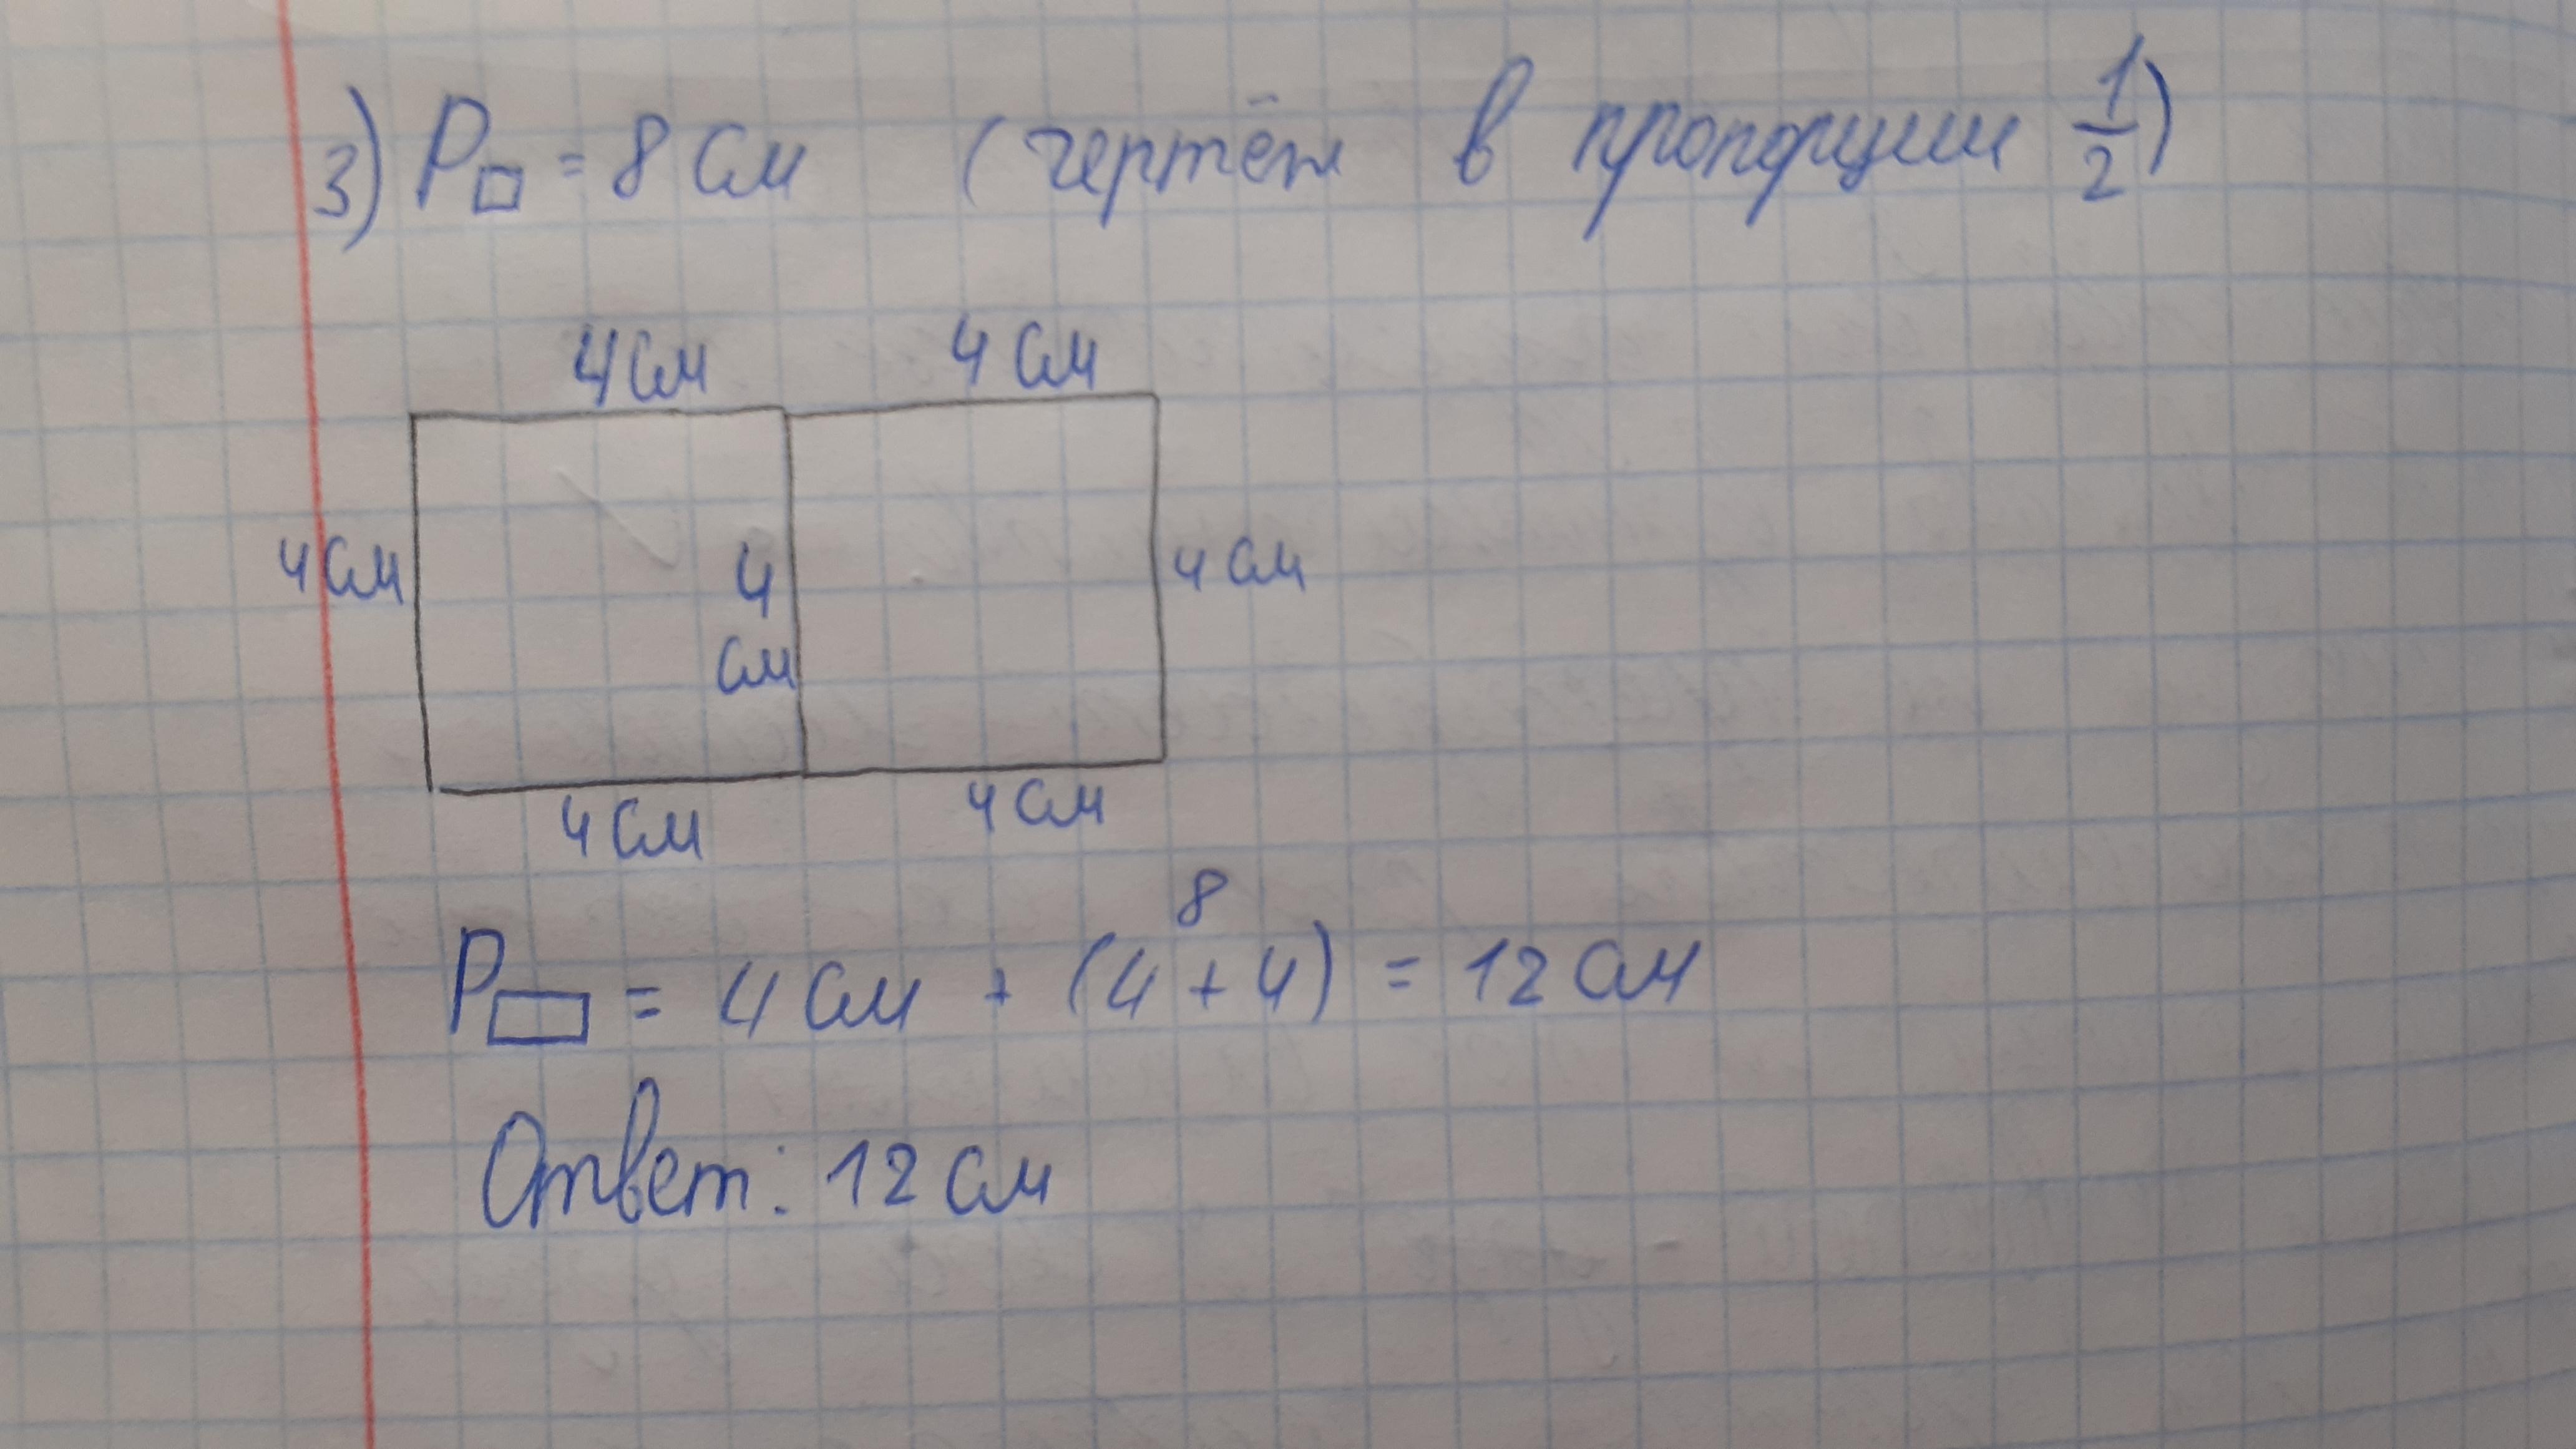 3) P□ = 8 см (чертёж в пропорции 1/2)
4 см 4 см
4 см 4 см 4 см
4 см 4 см
8
P▭ = 4 см + (4 + 4) = 12 см
Ответ: 12 см